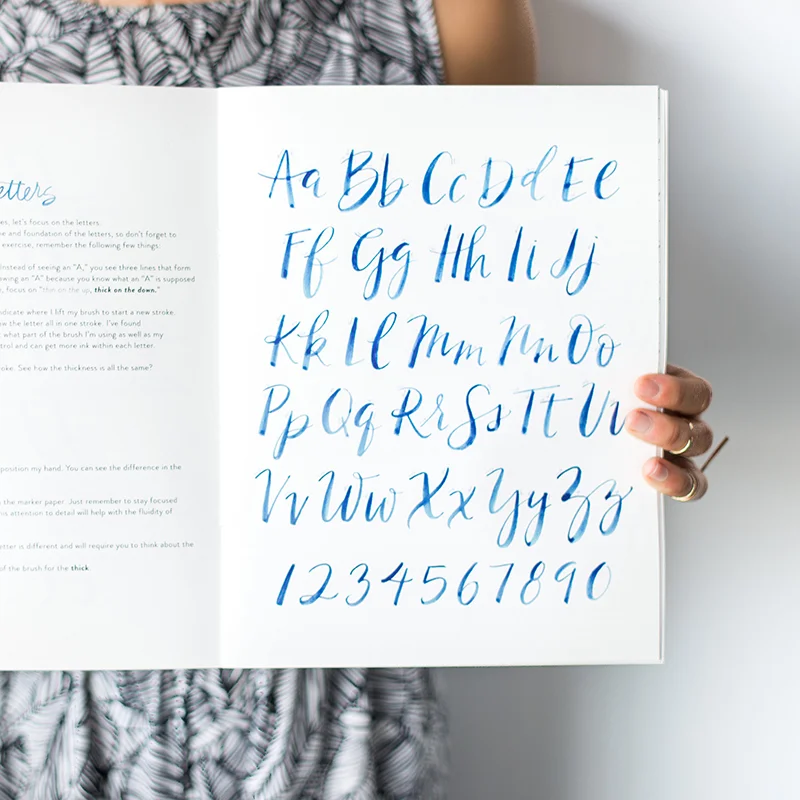 etters
es, let's focus on the letters.
e and foundation of the letters, so don't forget to
exercise, remember the following few things:
Instead of seeing an "A," you see three lines that form
owing an "A" because you know what an "A" is supposed
, focus on "thin on the up, thick on the down."
ndicate where I lift my brush to start a new stroke.
w the letter all in one stroke. I've found
t what part of the brush I'm using as well as my
trol and can get more ink within each letter.
oke. See how the thickness is all the same?
position my hand. You can see the difference in the
s the marker paper. Just remember to stay focused
his attention to detail will help with the fluidity of
etter is different and will require you to think about the
of the brush for the thick.
Aa Bb Cc Dd Ee
Ff Gg Hh Ii Jj
Kk Ll Mm Nn Oo
Pp Qq Rr Ss Tt Uu
Vv Ww Xx Yy Zz
1234567890